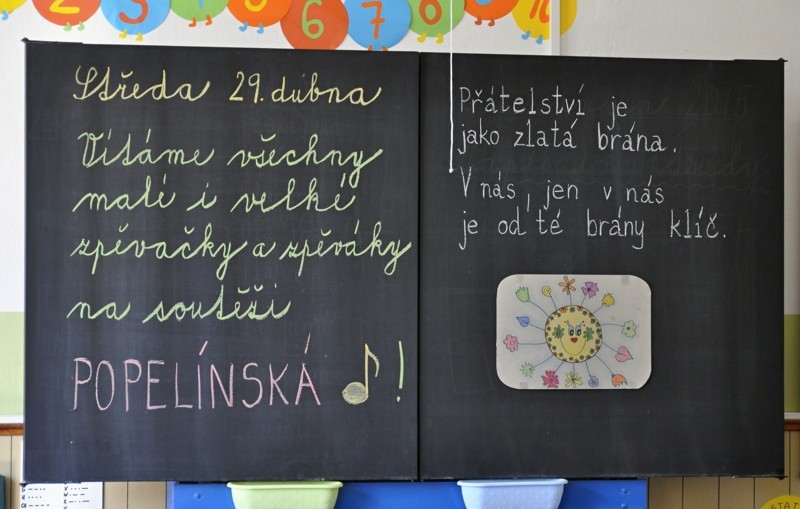 2 3 5 6 7 8
Středa 29. dubna
Vítáme všechny
malé i velké
zpěvačky a zpěváky
na soutěži
POPELÍNSKÁ !
Přátelství je
jako zlatá brána.
V nás, jen v nás
je od té brány klíč.